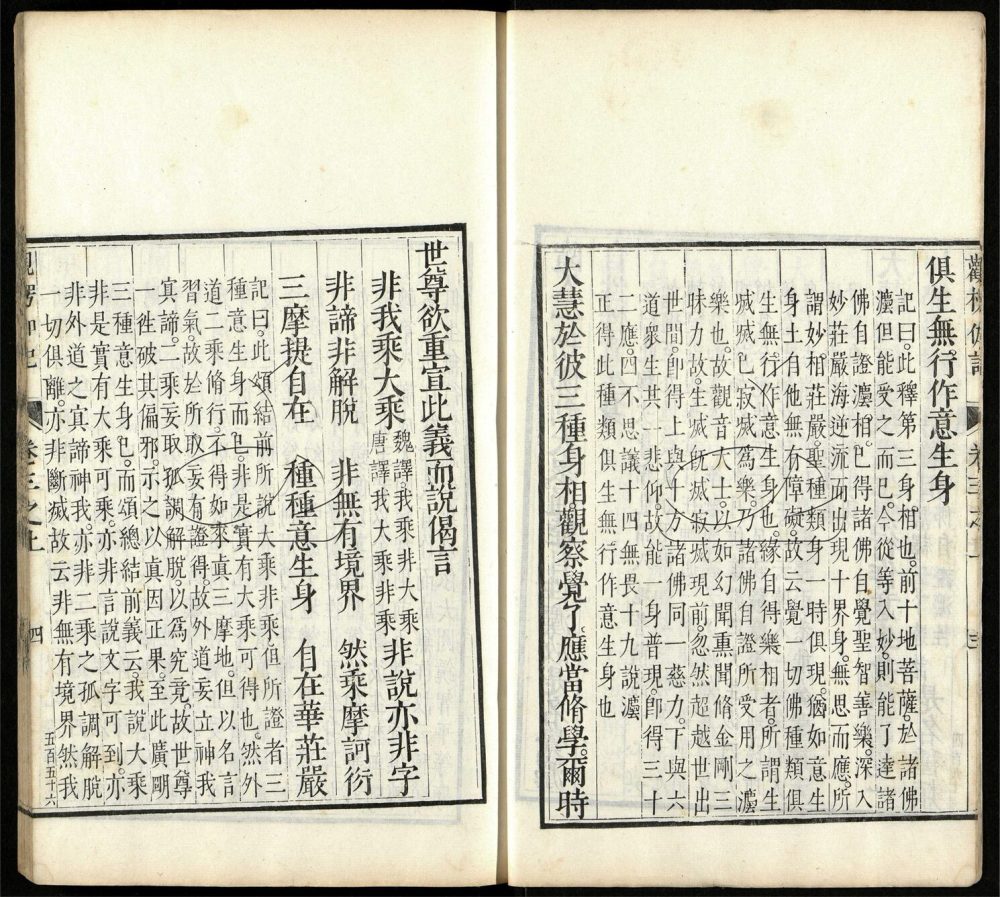 觀楞伽記 卷三之上 三
俱生無行作意生身
記曰。此釋第三身相也。前十地菩薩。於諸佛
灋但能受之而已。今從等入妙。則能了達諸
佛自證灋相。已得諸佛自覺聖智善樂。深入
妙莊嚴海逆流而出現十界身。無思而應。所
謂妙相莊嚴。聖種類身一時俱現。猶如意生
身土自他無有障礙。故云覺一切佛種類俱
生無行作意生身也。緣自得樂相者。所謂生
滅滅已寂滅為樂。乃諸佛自證所受用之灋
樂也。故觀音大士。以如幻聞熏聞脩金剛三
昧力故。生滅旣滅。寂滅現前。忽然超越世出
世間。卽得上與十方諸佛同一慈力。下與六
道衆生其一悲仰。故能一身普現。卽得三十
二應。四不思議十四無畏十九說灋
正得此種類俱生無行作意生身也
大慧於彼三種身相觀察覺了。應當脩學。爾時
世尊欲重宣此義而說偈言
非我乘大乘 魏譯我乘非大乘 唐譯我大乘非乘 非說亦非字
非諦非解脫 非無有境界 然乘摩訶衍
三摩提自在 種種意生身 自在華莊嚴
記曰。此頌結前所說大乘非乘。但所證者三
種意生身而已。非是實有大乘可得也。然外
道二乘脩行。不得如來眞三摩地。但以名言
習氣。故於所取妄有證得。故外道妄立神我
眞諦。二乘妄取孤調解脫。以為究竟。故世尊
一往破其偏邪。示之以眞因正果。至此廣剛
三種意生身已。而頌總結前義云。我說大乘
非是實有大乘可乘。亦非言說文字可到。亦
非外道之寘諦神我。亦非二乘之孤調解脫
一切俱離。亦非斷滅。故云非無有境界。然我
觀楞伽記 卷三之上 四 五百五十六